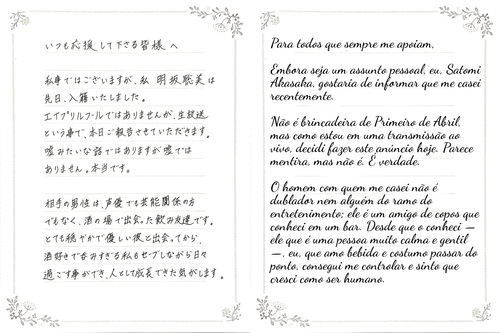 いつも応援して下さる皆様へ
私事ではございますが、私 明坂聡美は
先日、入籍いたしました。
エイプリルフールではありませんが、生放送
という事で、本日ご報告させていただきます。
嘘みたいな話ではありますが嘘では
ありません。本当です。
相手の男性は、声優でも芸能関係の方
でもなく、酒の場で出会った飲み友達です。
とても穏やかで優しい彼と出会ってから、
酒好きで呑みすぎる私もセーブしながら日々
過ごす事ができ、人として成長できた気がします。
Para todos que sempre me apoiam,
Embora seja um assunto pessoal, eu, Satomi
Akasaka, gostaria de informar que me casei
recentemente.
Não é brincadeira de Primeiro de Abril,
mas como estou em uma transmissão ao
vivo, decidi fazer este anúncio hoje. Parece
mentira, mas não é. É verdade.
O homem com quem me casei não é
dublador nem alguém do ramo do
entretenimento; ele é um amigo de copos que
conheci em um bar. Desde que o conheci —
ele que é uma pessoa muito calma e gentil
—, eu, que amo bebida e costumo passar do
ponto, consegui me controlar e sinto que
cresci como ser humano.